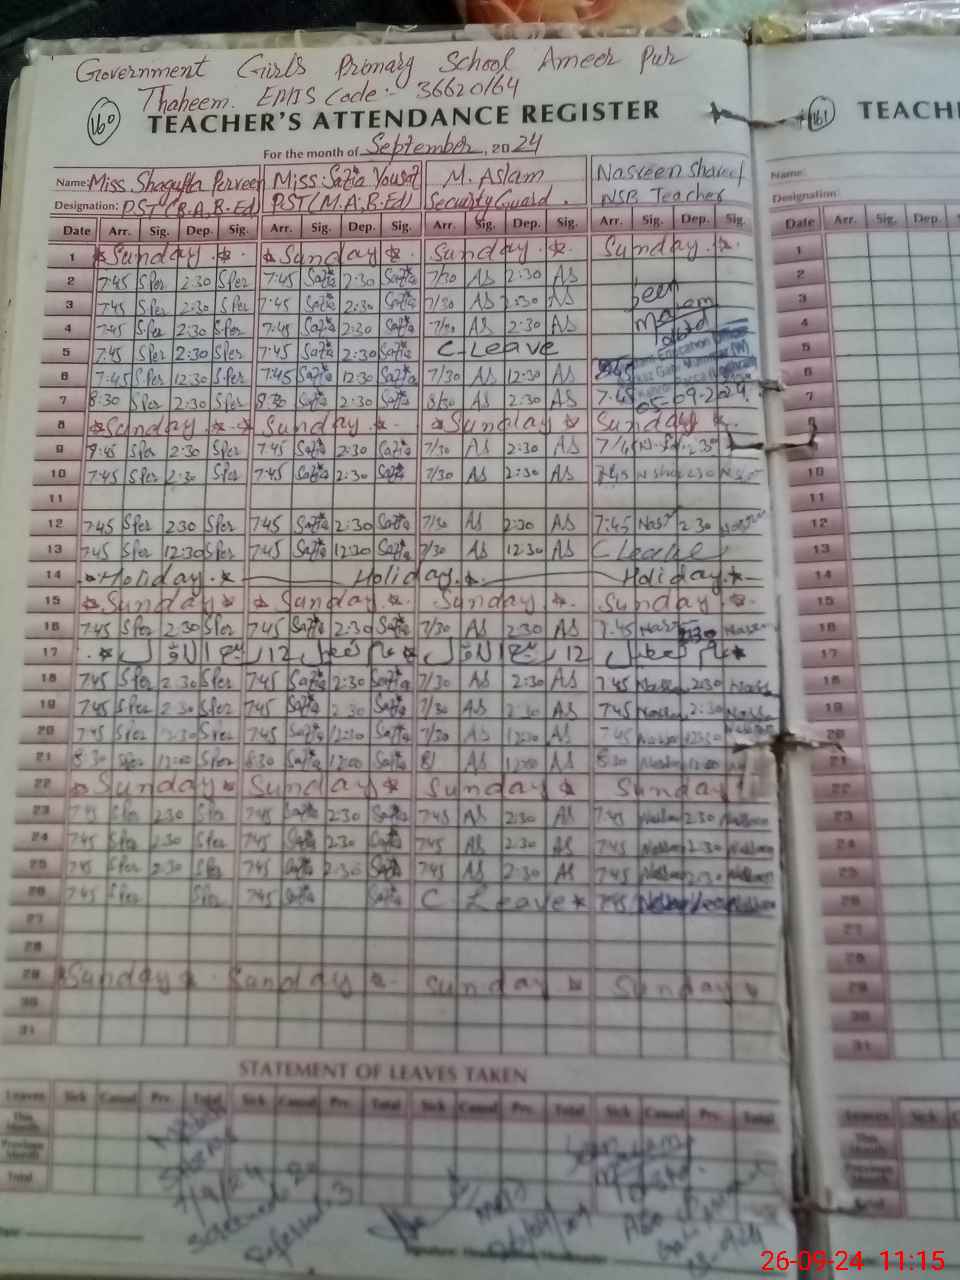 Government Girls Primary School Ameer Pur
Thaheem. EMIS Code:- 36620164
160 TEACHER'S ATTENDANCE REGISTER
For the month of September, 2024
Name: Miss Shagufta Perveen Miss Safia Yousaf M. Aslam Nasreen Sharef
Designation: PST (B.A, B.Ed) PST (M.A, B.Ed) Security Guard. NSB Teacher
Date Arr. Sig. Dep. Sig. Arr. Sig. Dep. Sig. Arr. Sig. Dep. Sig. Arr. Sig. Dep. Sig.
1 Sunday Sunday Sunday Sunday
2 7:45 SPer 2:30 SPer 7:45 Safia 2:30 Safia 7/30 AS 2:30 AS
3 7:45 SPer 2:30 SPer 7:45 Safia 2:30 Safia 7/30 AS 2:30 AS
4 7:45 SPer 2:30 SPer 7:45 Safia 2:30 Safia 7/30 AS 2:30 AS
5 7:45 SPer 2:30 SPer 7:45 Safia 2:30 Safia C-Leave
6 7:45 SPer 12:30 SPer 7:45 Safia 12:30 Safia 7/30 AS 12:30 AS
7 8:30 SPer 2:30 SPer 8:30 Safia 2:30 Safia 8/30 AS 2:30 AS 7:45 05-09-2024
8 Sunday Sunday Sunday Sunday
9 7:45 SPer 2:30 SPer 7:45 Safia 2:30 Safia 7/30 AS 2:30 AS 7/45 2:30
10 7:45 SPer 2:30 SPer 7:45 Safia 2:30 Safia 7/30 AS 2:30 AS 7:45 2:30
11
12 7:45 SPer 2:30 SPer 7:45 Safia 2:30 Safia 7/30 AS 2:30 AS 7:45 Nas 2:30
13 7:45 SPer 12:30 SPer 7:45 Safia 12:30 Safia 7/30 AS 12:30 AS C Leave
14 Holiday Holiday Holiday
15 Sunday Sunday Sunday Sunday
16 7:45 SPer 2:30 SPer 7:45 Safia 2:30 Safia 7/30 AS 2:30 AS 7:45 2:30
17 12 ربیع الاول 12 ربیع الاول
18 7:45 SPer 2:30 SPer 7:45 Safia 2:30 Safia 7/30 AS 2:30 AS 7:45 2:30
19 7:45 SPer 2:30 SPer 7:45 Safia 2:30 Safia 7/30 AS 2:30 AS 7:45 2:30
20 7:45 SPer 12:30 SPer 7:45 Safia 12:30 Safia 7/30 AS 12:30 AS 7:45 12:30
21 8:30 SPer 12:00 SPer 8:30 Safia 12:00 Safia 8/ AS 12:00 AS 8:30 12:00
22 Sunday Sunday Sunday Sunday
23 7:45 SPer 2:30 SPer 7:45 Safia 2:30 Safia 7:45 AS 2:30 AS 7:45 2:30
24 7:45 SPer 2:30 SPer 7:45 Safia 2:30 Safia 7:45 AS 2:30 AS 7:45 2:30
25 7:45 SPer 2:30 SPer 7:45 Safia 2:30 Safia 7:45 AS 2:30 AS 7:45 2:30
26 7:45 SPer SPer 7:45 Safia Safia C Leave 7:45
27
28
29 Sunday Sunday Sunday Sunday
30
31
STATEMENT OF LEAVES TAKEN
Leaves Sick Casual Prv. Total Sick Casual Prv. Total Sick Casual Prv. Total Sick Casual Prv. Total
This Month
Previous Month
Total
7/9/24
161 TEACHE
Name:
Designation
Date Arr. Sig. Dep. Sig.
1
2
3
4
5
6
7
8
9
10
11
12
13
14
15
16
17
18
19
20
21
22
23
24
25
26
27
28
29
30
31
Leaves Sick C
This Month
Previous Month
Total
26-09-24 11:15